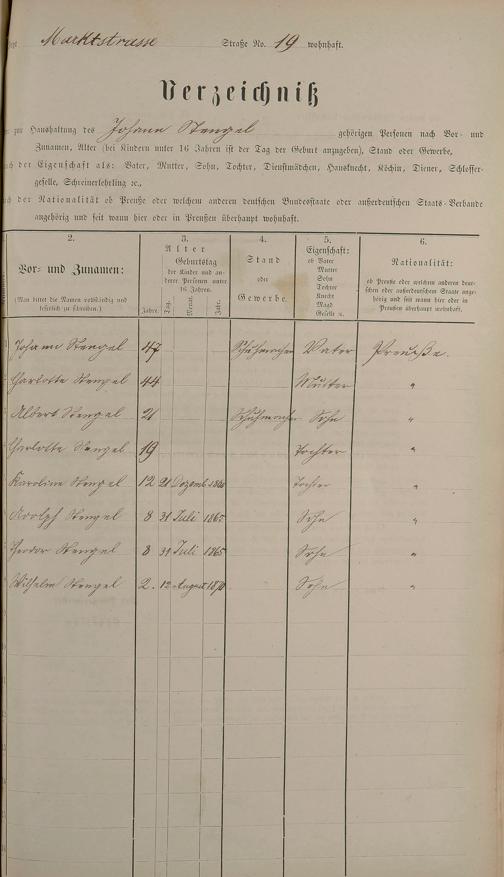 Marktstrasse Straße No. 19 wohnhaft.
Verzeichniß
zur Haushaltung des Johann Stengel gehörigen Personen nach Vor- und
Zunamen, Alter (bei Kindern unter 16 Jahren ist der Tag der Geburt anzugeben), Stand oder Gewerbe,
der Eigenschaft als: Vater, Mutter, Sohn, Tochter, Dienstmädchen, Hausknecht, Köchin, Diener, Schlosser-
geselle, Schreinerlehrling ꝛc.,
der Nationalität ob Preuße oder welchem anderen deutschen Bundesstaate oder außerdeutschen Staats-Verbande
angehörig und seit wann hier oder in Preußen überhaupt wohnhaft.
2.
Vor- und Zunamen:
(Man bittet die Namen vollständig und
leserlich zu schreiben.)
3.
Alter
Geburtstag
der Kinder und an-
derer Personen unter
16 Jahren.
Jahre. Tag. Monat. Jahr.
4.
Stand
oder
Gewerbe.
5.
Eigenschaft:
ob Vater
Mutter
Sohn
Tochter
Knecht
Magd
Geselle ꝛc.
6.
Nationalität:
ob Preuße oder welchem anderen deut-
schen oder außerdeutschen Staate ange-
hörig und seit wann hier oder in
Preußen überhaupt wohnhaft.
Johann Stengel 47 Schuhmacher Vater Preuße.
Charlotte Stengel 44 Mutter "
Albert Stengel 21 Schuhmacher Sohn "
Charlotte Stengel 19 Tochter "
Karoline Stengel 12 21 Dezemb. 1860 Tochter "
Adolph Stengel 8 31 Juli 1865 Sohn "
Theodor Stengel 8 31 Juli 1865 Sohn "
Wilhelm Stengel 2. 12 August 1870 Sohn "